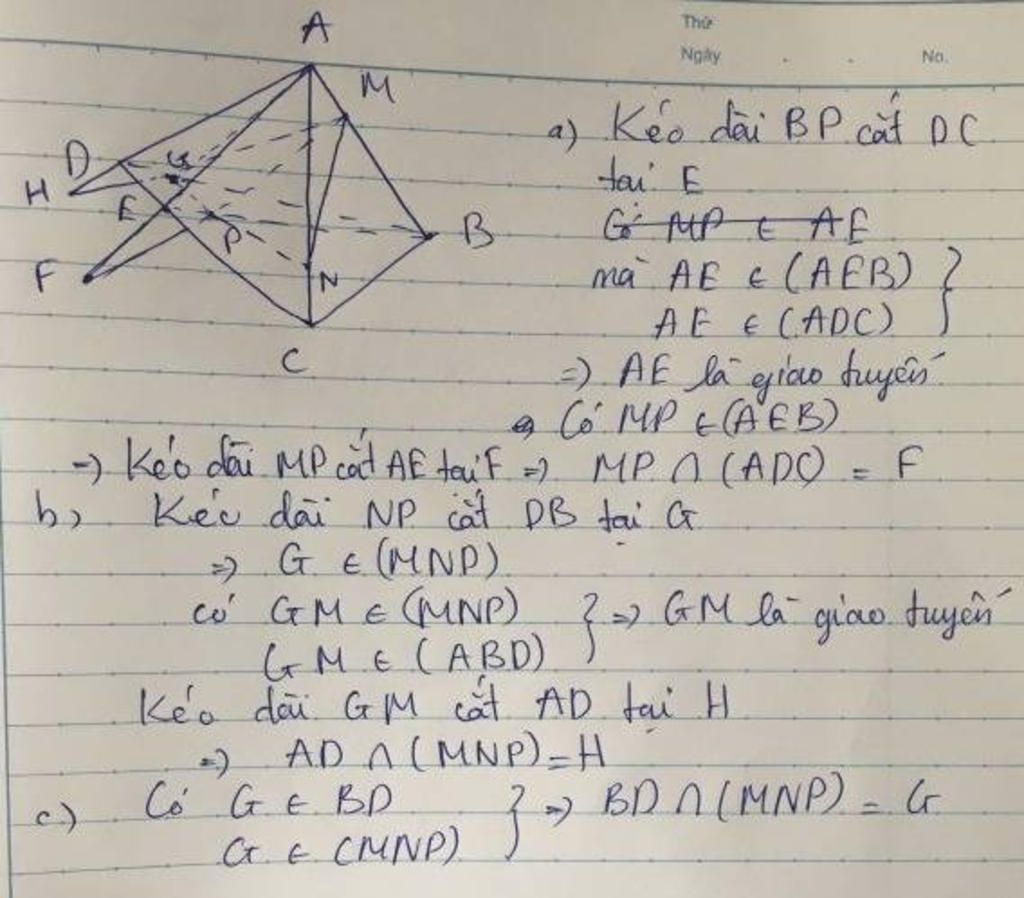 Thứ
Ngày . . No.
A
M
D
G
H
E
P
B
F
N
C
a) Kéo dài BP cắt DC
tại E
Có MP ∈ AE
mà AE ∈ (AEB) }
AE ∈ (ADC)
=) AE là giao tuyến
Có MP ∈ (AEB)
=) Kéo dài MP cắt AE tại F =) MP ∩ (ADC) = F
b) Kéo dài NP cắt DB tại G
=) G ∈ (MNP)
có GM ∈ (MNP) } =) GM là giao tuyến
GM ∈ (ABD)
Kéo dài GM cắt AD tại H
=) AD ∩ (MNP) = H
c) Có G ∈ BD } =) BD ∩ (MNP) = G
G ∈ (MNP)